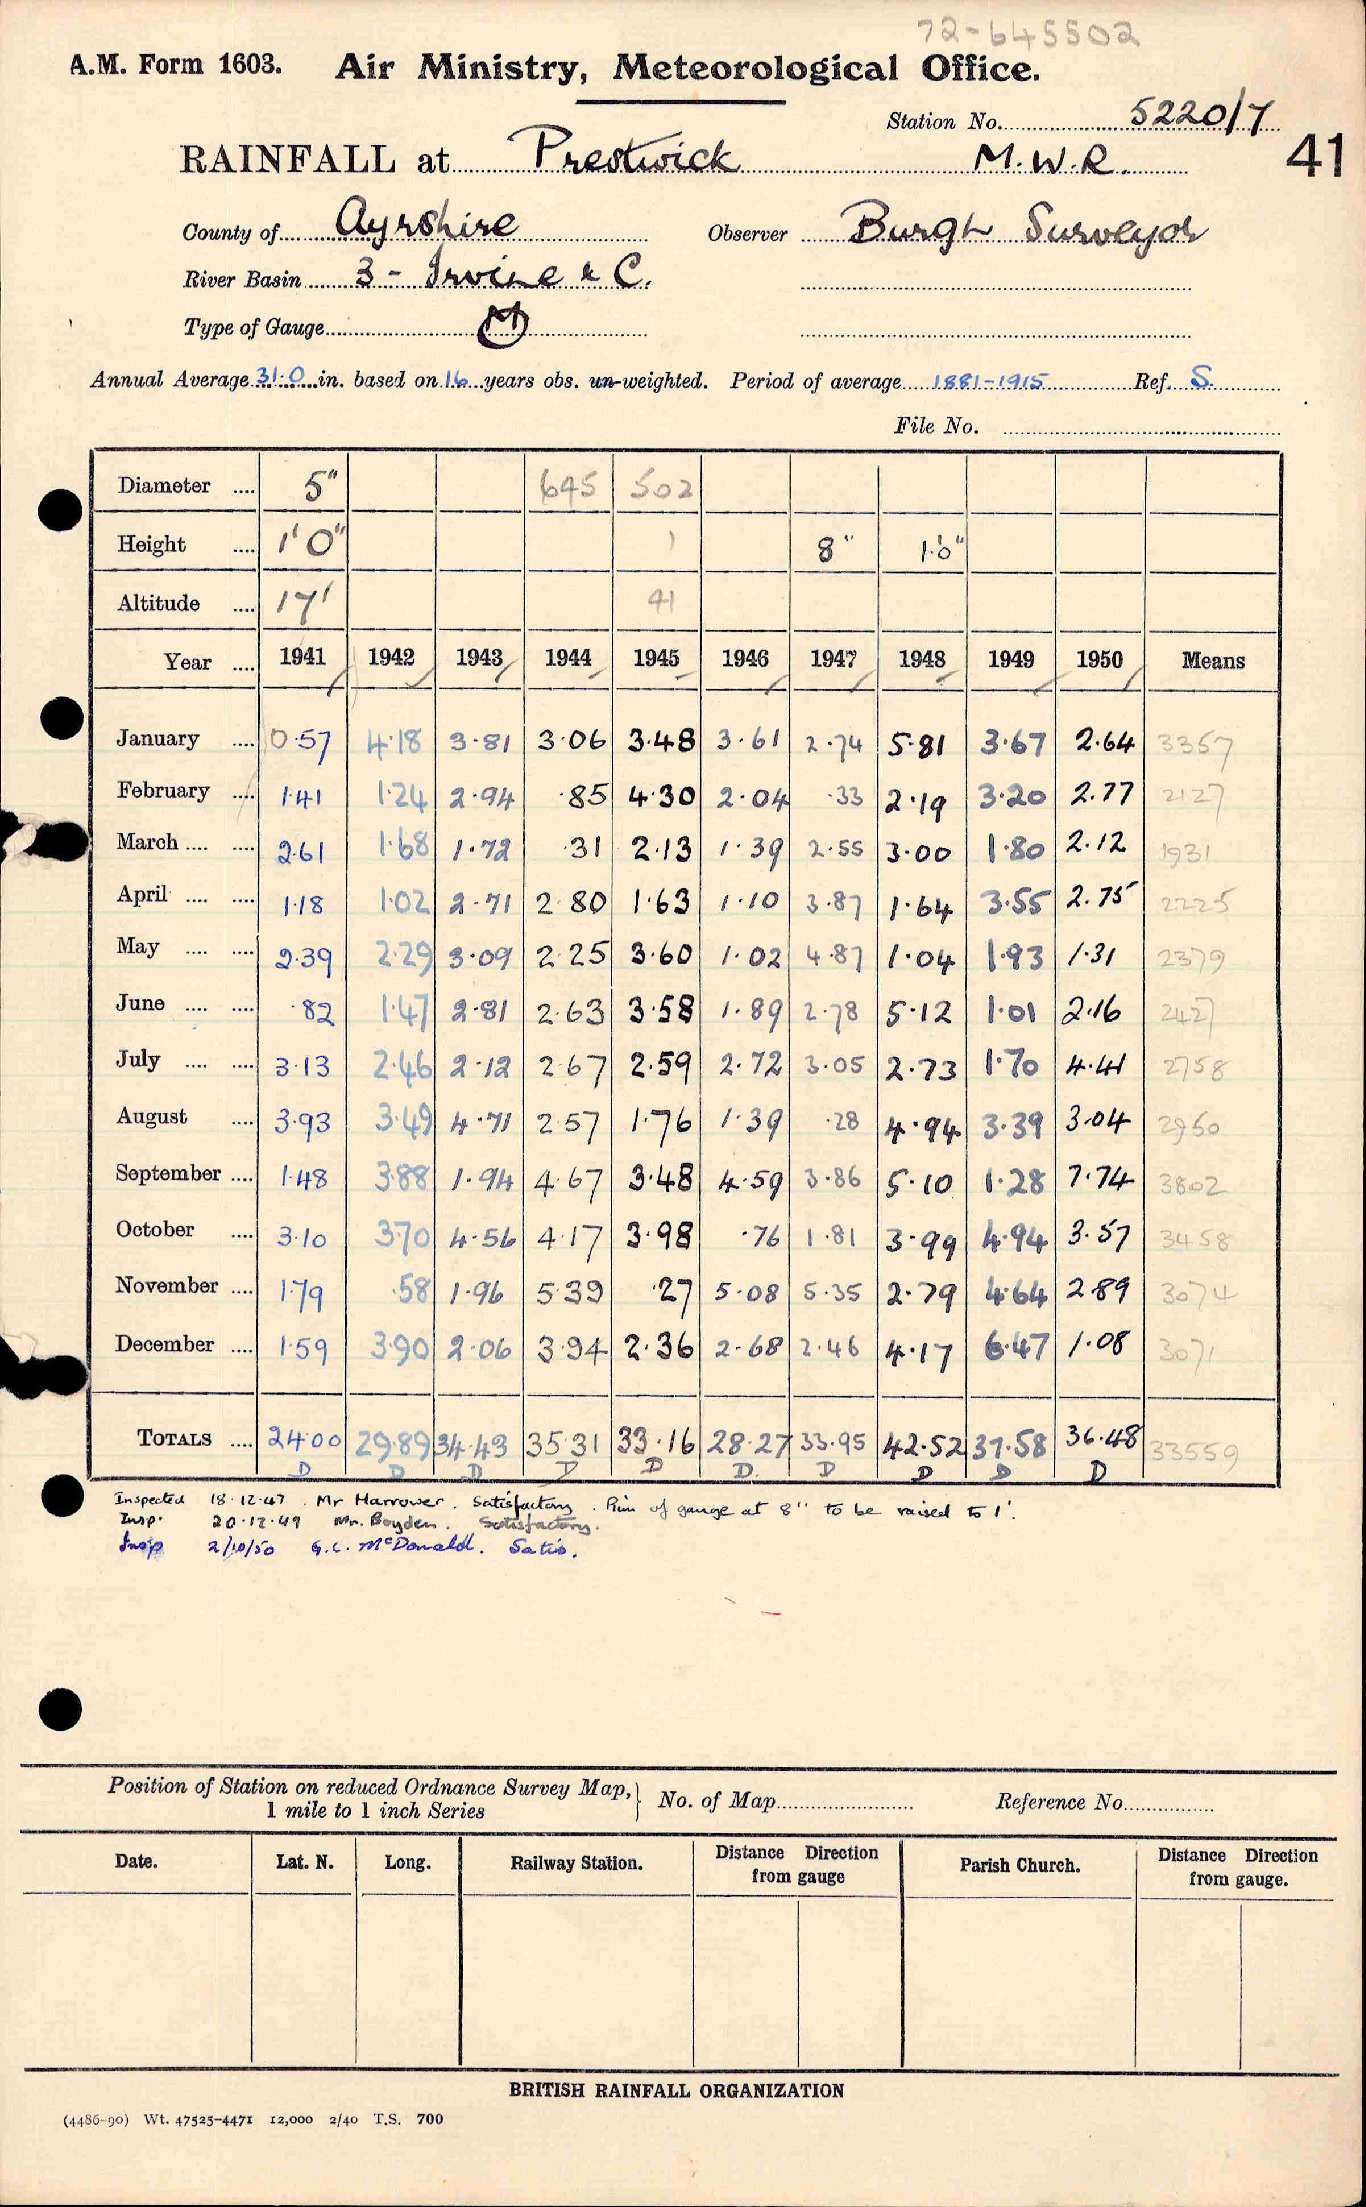 72-645502
A.M. Form 1603. Air Ministry, Meteorological Office.
Station No. 5220/7
RAINFALL at Prestwick M.W.R. 41
County of Ayrshire Observer Burgh Surveyor
River Basin 3 - Irvine & C.
Type of Gauge M
Annual Average 31.0 in. based on 16 years obs. un-weighted. Period of average 1881-1915 Ref. S.
File No.
Diameter 5" 645 502
Height 1' 0" 1 8" 1'0"
Altitude 17' 41
Year 1941 1942 1943 1944 1945 1946 1947 1948 1949 1950 Means
January 0.57 4.18 3.81 3.06 3.48 3.61 2.74 5.81 3.67 2.64 3357
February 1.41 1.24 2.94 .85 4.30 2.04 .33 2.19 3.20 2.77 2127
March 2.61 1.68 1.72 .31 2.13 1.39 2.55 3.00 1.80 2.12 1931
April 1.18 1.02 2.71 2.80 1.63 1.10 3.87 1.64 3.55 2.75 2225
May 2.39 2.29 3.09 2.25 3.60 1.02 4.87 1.04 1.93 1.31 2379
June .82 1.47 2.81 2.63 3.58 1.89 2.78 5.12 1.01 2.16 2427
July 3.13 2.46 2.12 2.67 2.59 2.72 3.05 2.73 1.70 4.41 2758
August 3.93 3.49 4.71 2.57 1.76 1.39 .28 4.94 3.39 3.04 2950
September 1.48 3.88 1.94 4.67 3.48 4.59 3.86 5.10 1.28 7.74 3802
October 3.10 3.70 4.56 4.17 3.98 .76 1.81 3.99 4.94 3.57 3458
November 1.79 .58 1.96 5.39 .27 5.08 5.35 2.79 4.64 2.89 3074
December 1.59 3.90 2.06 3.94 2.36 2.68 2.46 4.17 6.47 1.08 3071
TOTALS 24.00 29.89 34.43 35.31 33.16 28.27 33.95 42.52 37.58 36.48 33559
D D D D D D D D D D
Inspected 18.12.47. Mr Harrower. Satisfactory. Rim of gauge at 8" to be raised to 1'.
Insp. 20.12.49 Mr. Boyden. Satisfactory.
Insp 2/10/50 G.C. McDonald. Satis.
Position of Station on reduced Ordnance Survey Map, 1 mile to 1 inch Series No. of Map Reference No.
Date. Lat. N. Long. Railway Station. Distance Direction from gauge Parish Church. Distance Direction from gauge.
BRITISH RAINFALL ORGANIZATION
(4486-90) Wt. 47525-4471 12,000 2/40 T.S. 700